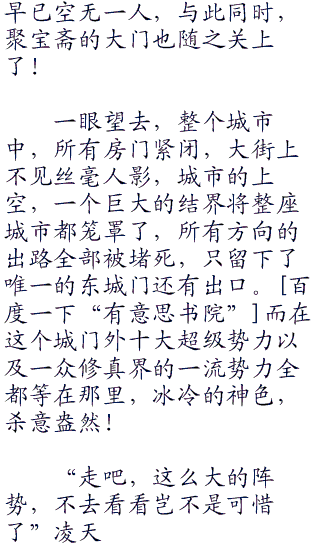 早已空无一人，与此同时，
聚宝斋的大门也随之关上
了！
一眼望去，整个城市
中，所有房门紧闭，大街上
不见丝毫人影，城市的上
空，一个巨大的结界将整座
城市都笼罩了，所有方向的
出路全部被堵死，只留下了
唯一的东城门还有出口。[百
度一下“有意思书院”]而在
这个城门外十大超级势力以
及一众修真界的一流势力全
都等在那里，冰冷的神色，
杀意盎然！
“走吧，这么大的阵
势，不去看看岂不是可惜
了”凌天